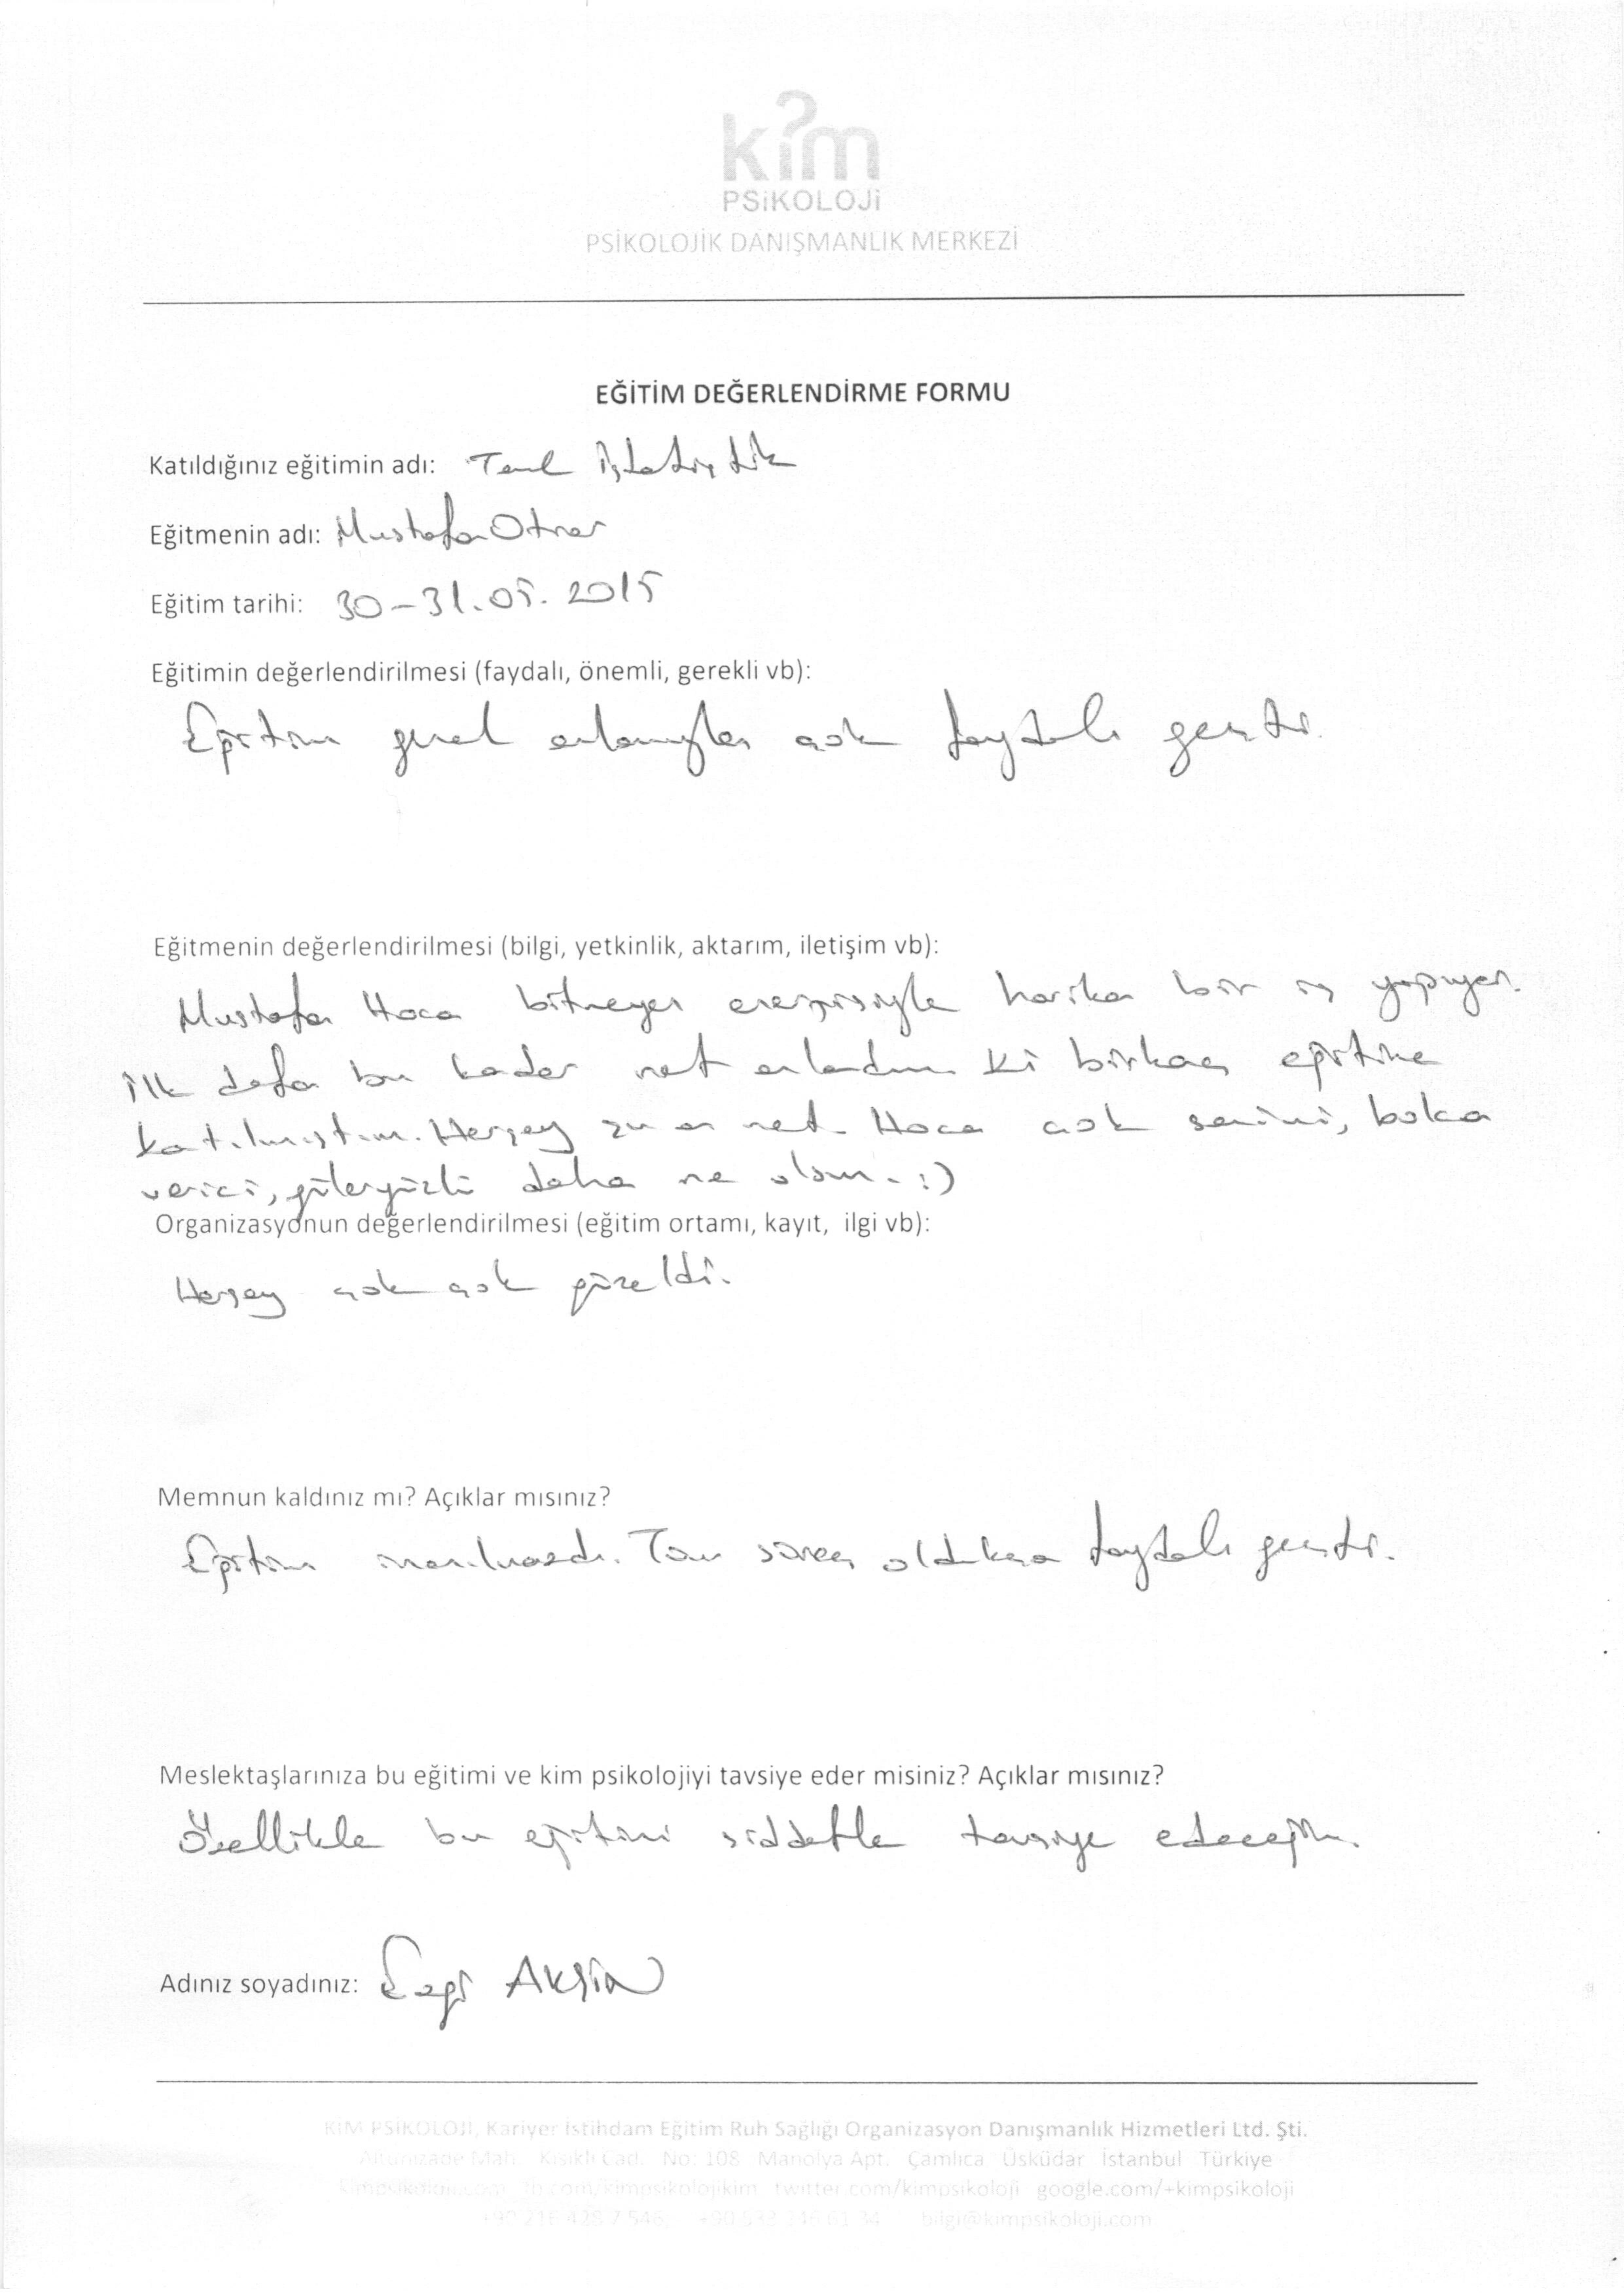 kim
PSiKOLOJi
PSİKOLOJİK DANIŞMANLIK MERKEZİ
EĞİTİM DEĞERLENDİRME FORMU
Katıldığınız eğitimin adı: Temel İstatistik
Eğitmenin adı: Mustafa Otrar
Eğitim tarihi: 30-31.05.2015
Eğitimin değerlendirilmesi (faydalı, önemli, gerekli vb):
Eğitim genel anlamıyla çok faydalı geçti.
Eğitmenin değerlendirilmesi (bilgi, yetkinlik, aktarım, iletişim vb):
Mustafa Hoca bitmeyen enerjisiyle harika bir iş yapıyor.
İlk defa bu kadar net anladım ki birkaç eğitime
katılmıştım. Herşey şu an net. Hoca çok samimi,
verici, güleryüzlü daha ne olsun. :)
Organizasyonun değerlendirilmesi (eğitim ortamı, kayıt, ilgi vb):
Herşey çok çok güzeldi.
Memnun kaldınız mı? Açıklar mısınız?
Eğitim inanılmazdı. Tüm süreç oldukça faydalı geçti.
Meslektaşlarınıza bu eğitimi ve kim psikolojiyi tavsiye eder misiniz? Açıklar mısınız?
Özellikle bu eğitimi şiddetle tavsiye edeceğim.
Adınız soyadınız: Ezgi AKŞİN
KİM PSİKOLOJİ, Kariyer İstihdam Eğitim Ruh Sağlığı Organizasyon Danışmanlık Hizmetleri Ltd. Şti.
Altunizade Mah. Kısıklı Cad. No: 108 Manolya Apt. Çamlıca Üsküdar İstanbul Türkiye
kimpsikoloji.com fb.com/kimpsikolojikim twitter.com/kimpsikoloji google.com/+kimpsikoloji
bilgi@kimpsikoloji.com